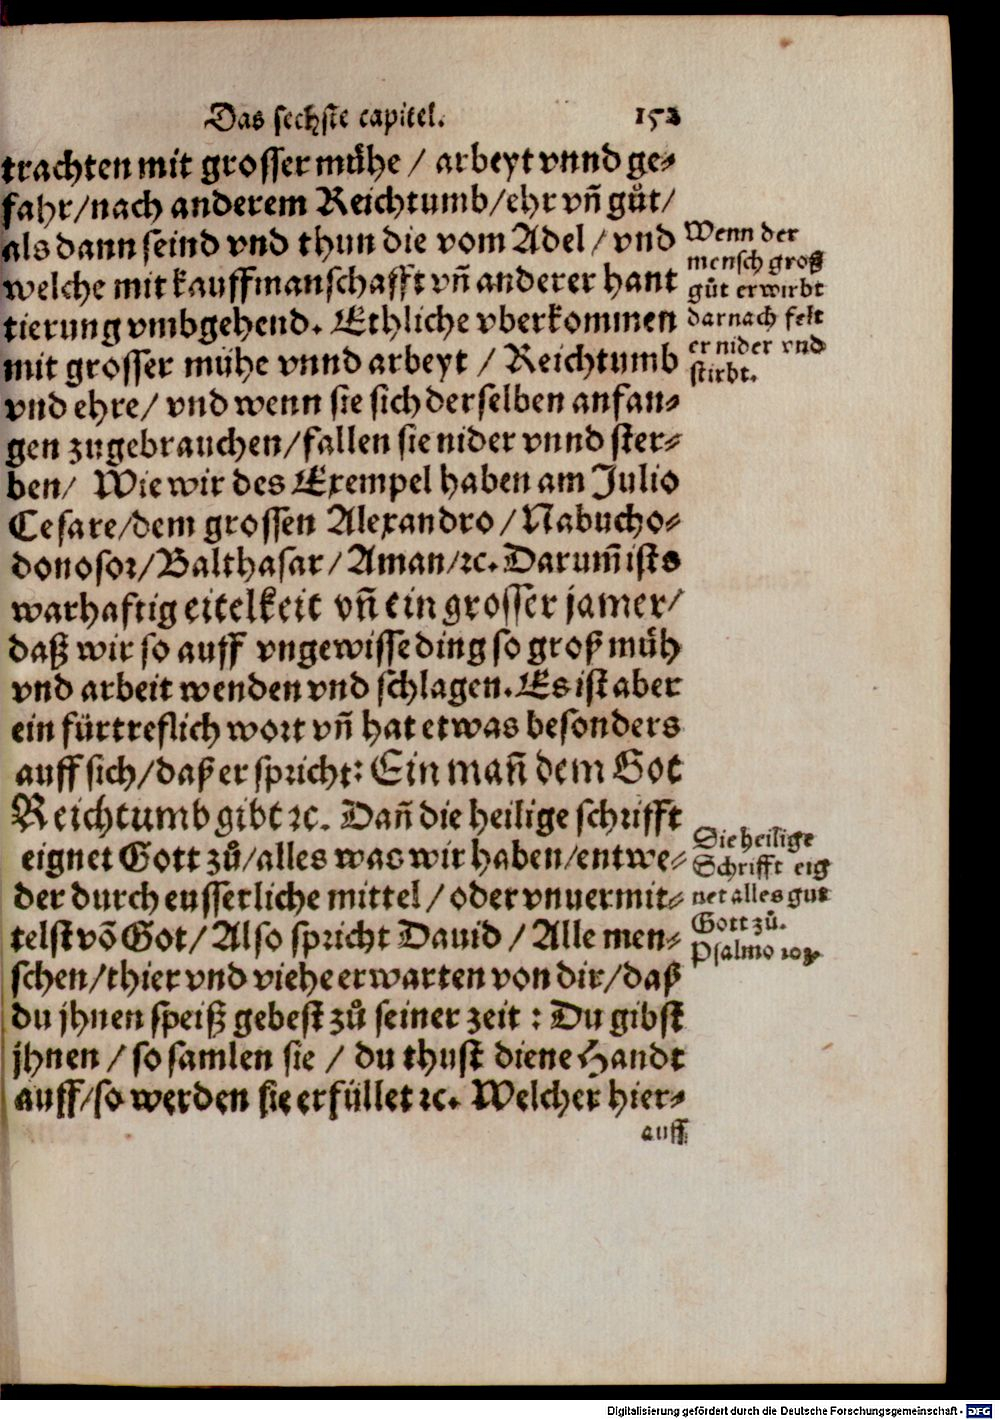 Das sechste capitel. 152
trachten mit grosser mühe / arbeyt vnnd ge⸗
fahr/nach anderem Reichtumb/ehr vñ gůt/
als dann seind vnd thun die vom Adel / vnd
welche mit kauffmanschafft vñ anderer hant
tierung vmbgehend. Ethliche vberkommen
mit grosser mühe vnnd arbeyt / Reichtumb
vnd ehre/ vnd wenn sie sich derselben anfan⸗
gen zugebrauchen/fallen sie nider vnnd ster⸗
ben/ Wie wir des Exempel haben am Julio
Cesare/dem grossen Alexandro / Nabucho⸗
donosor/Balthasar/Aman/ꝛc. Darum̃ ists
warhaftig eitelkeit vñ ein grosser jamer/
daß wir so auff vngewisse ding so groß müh
vnd arbeit wenden vnd schlagen. Es ist aber
ein fürtreflich wort vñ hat etwas besonders
auff sich/daß er spricht: Ein mañ dem Got
Reichtumb gibt ꝛc. Dañ die heilige schrifft
eignet Gott zů/alles was wir haben/entwe⸗
der durch eusserliche mittel / oder vnuermit⸗
telst võ Got/ Also spricht Dauid / Alle men⸗
schen/thier vnd viehe erwarten von dir/daß
du jhnen speiß gebest zů seiner zeit : Du gibst
jhnen / so samlen sie / du thust diene Handt
auff/so werden sie erfüllet ꝛc. Welcher hier⸗
auff
Wenn der
mensch groß
gůt erwirbt
darnach felt
er nider vnd
stirbt.
Die heilige
Schrifft eig
net alles gut
Gott zů.
Psalmo 103.
Digitalisierung gefördert durch die Deutsche Forschungsgemeinschaft - DFG